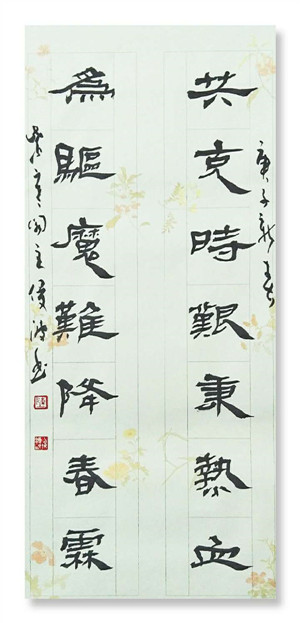 庚子新春
共克時艱秉熱血
為驅魔難降春霖
主俊波書